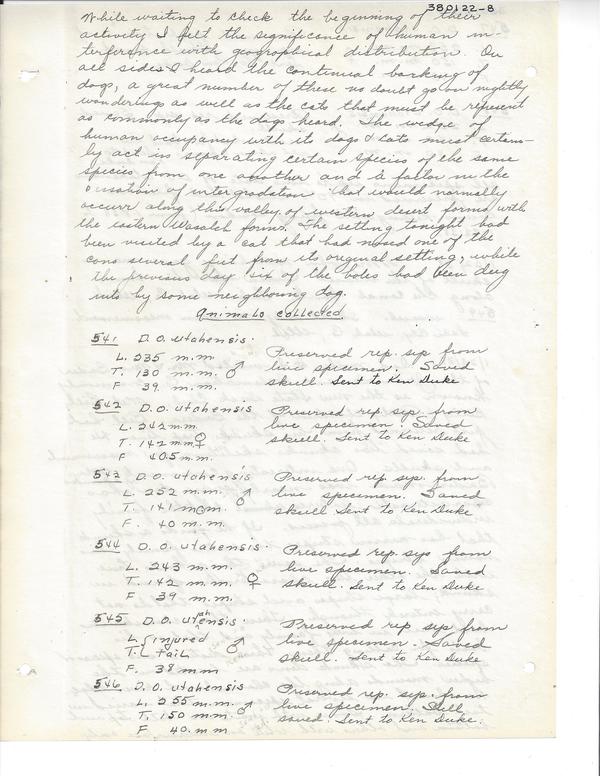 380122-8
While waiting to check the beginning of their
activity I felt the significance of human in-
terference with geographical distribution. On
all sides I heard the continual barking of
dogs, a great number of these no doubt go on nightly
wanderings as well as the cats that must be represent
as commonly as the dogs heard. The wedge of
human occupancy with its dogs & cats must certain-
ly act in separating certain species of the same
species from one another and a factor in the
cessation of intergradation that would normally
occurr along this valley of western desert forms with
the eastern Wasatch forms. The setting tonight had
been visited by a cat that had nosed one of the
cans several feet from its original setting, while
the previous day six of the holes had been dug
into by some neighboring dog.
Animals collected
541 D. O. utahensis. Preserved rep. sys from
L. 235 m.m. live specimen. Saved
T. 130 m.m. ♂ skull. Sent to Ken Duke
F 39. m.m.
542 D. O. utahensis Preserved rep. sys. from
L. 242 m.m. live specimen. Saved
T. 142 m.m. ♀ skull. Sent to Ken Duke
F 40.5 m.m.
543 D. O. utahensis Preserved rep. sys. from
L. 252 m.m. live specimen. Saved
T. 141 m.m. ♂ skull Sent to Ken Duke
F. 40 m.m.
544 D. O. utahensis. Preserved rep. sys from
L. 243 m.m. live specimen. Saved
T. 142 m.m. ♀ skull. Sent to Ken Duke
F 39 m.m.
545 D. O. utahensis Preserved rep sys from
L. { injured ♂ live specimen. Saved
T. { tail skull. Sent to Ken Duke
F. 38 mm
546 D. O. utahensis Preserved rep. sys. from
L. 255 m.m. live specimen. Skull
T. 150 m.m. ♂ saved. Sent to Ken Duke.
F 40. m m